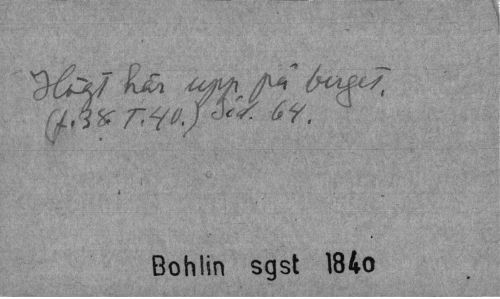 Högt här upp på berget.
(f.38. T.40.) Sid. 64.
Bohlin sgst 1840